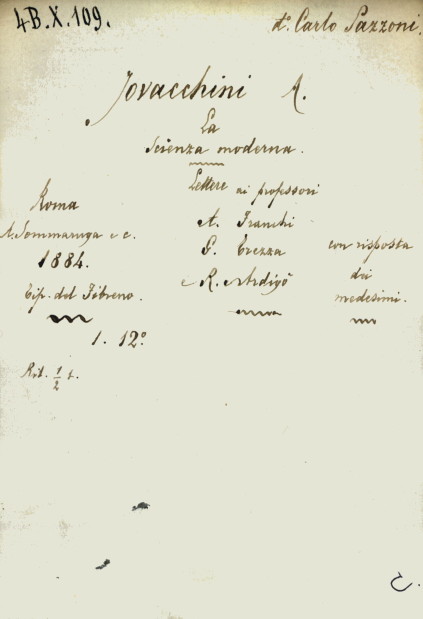 4B.X.109.
d.º Carlo Pazzoni.
Jovacchini A.
La
Scienza moderna.
Lettere ai professori
A. Franchi
G. Trezza
e R. Ardigò
con risposta
dei
medesimi.
Roma
A. Sommaruga e c.
1884.
Tip. del Fibreno.
1. 12º
1/2
C.